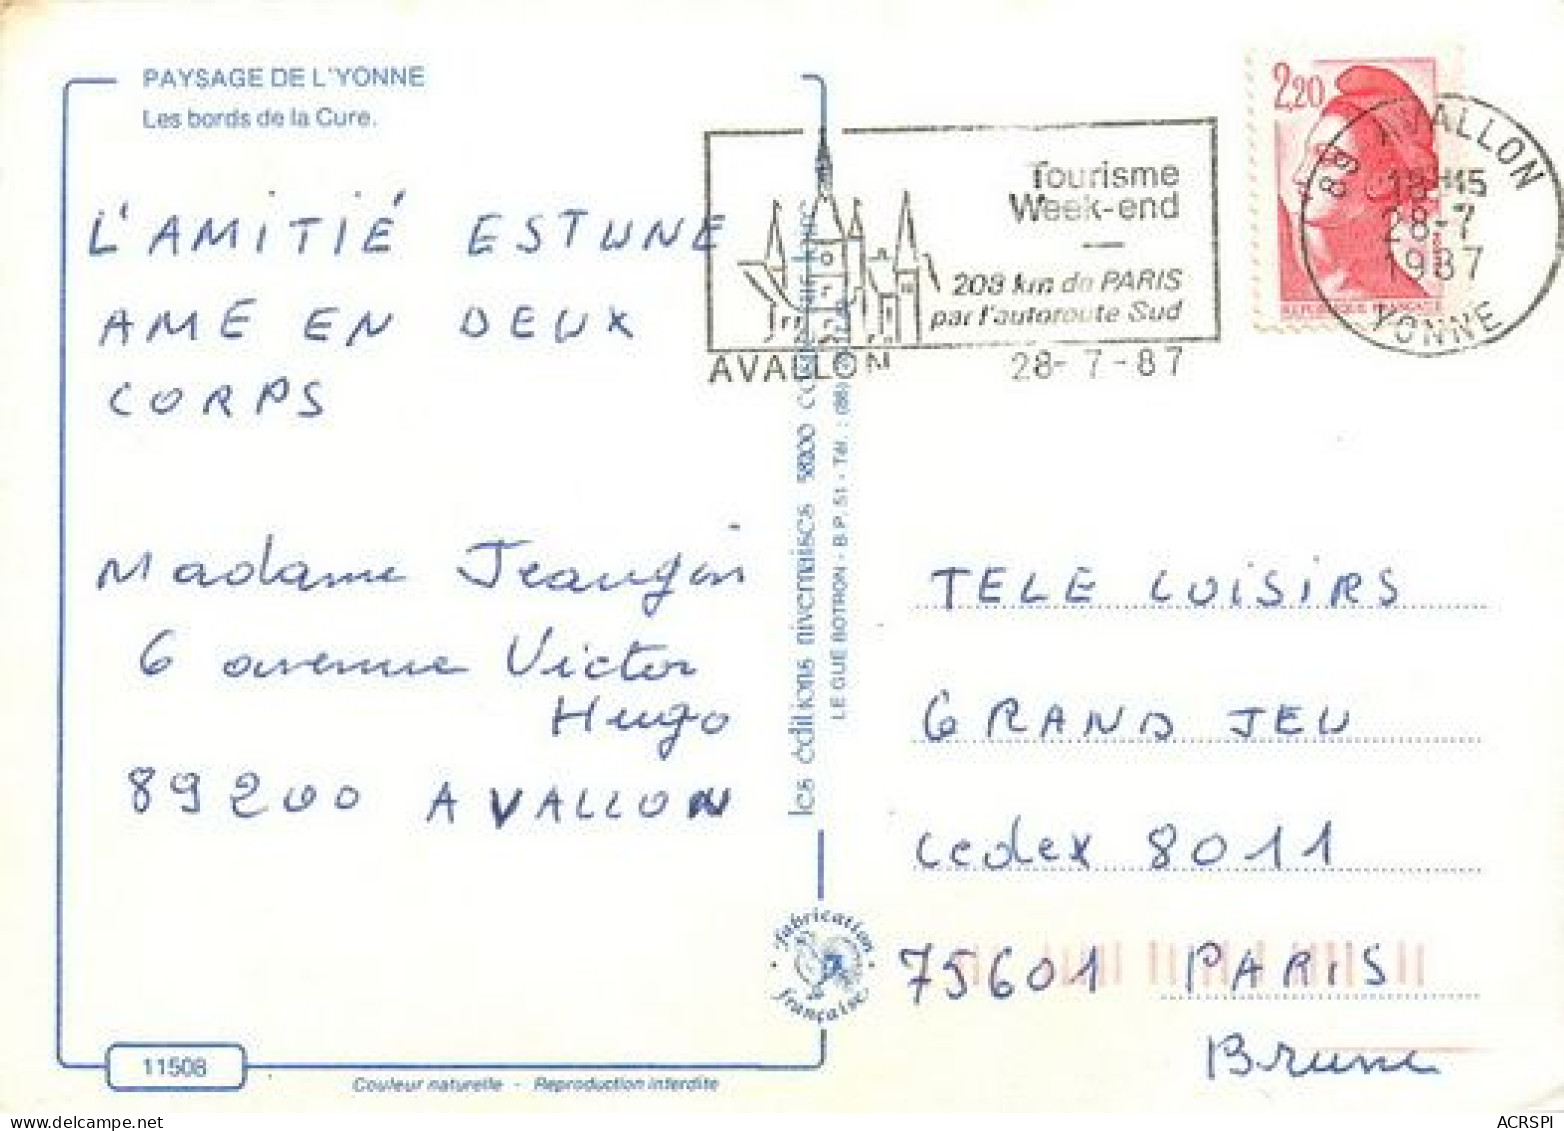 PAYSAGE DE L'YONNE
Les bords de la Cure.
L'AMITIÉ EST UNE
AME EN DEUX
CORPS
Madame Jeangin
6 avenue Victor
Hugo
89200 AVALLON
11508
Couleur naturelle - Reproduction interdite
les éditions nivernaises 58200
LE GUE BOTRON - B.P. 51 - Tél. : (86)
fabrication
française
Tourisme
Week-end
209 km de PARIS
par l'autoroute Sud
AVALLON
28-7-87
2,20
REPUBLIQUE FRANÇAISE
89 AVALLON
18H15
28-7
1987
YONNE
TELE LOISIRS
GRAND JEU
Cedex 8011
75601 PARIS
Brune
ACRSPI